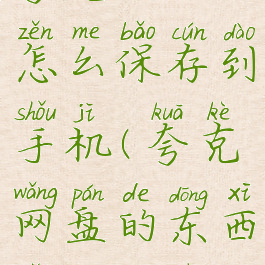 zěn me bǎo cún dào
怎么保存到
shǒu jī kuā kè
手机(夸克
wǎng pán de dōng xī
网盘的东西